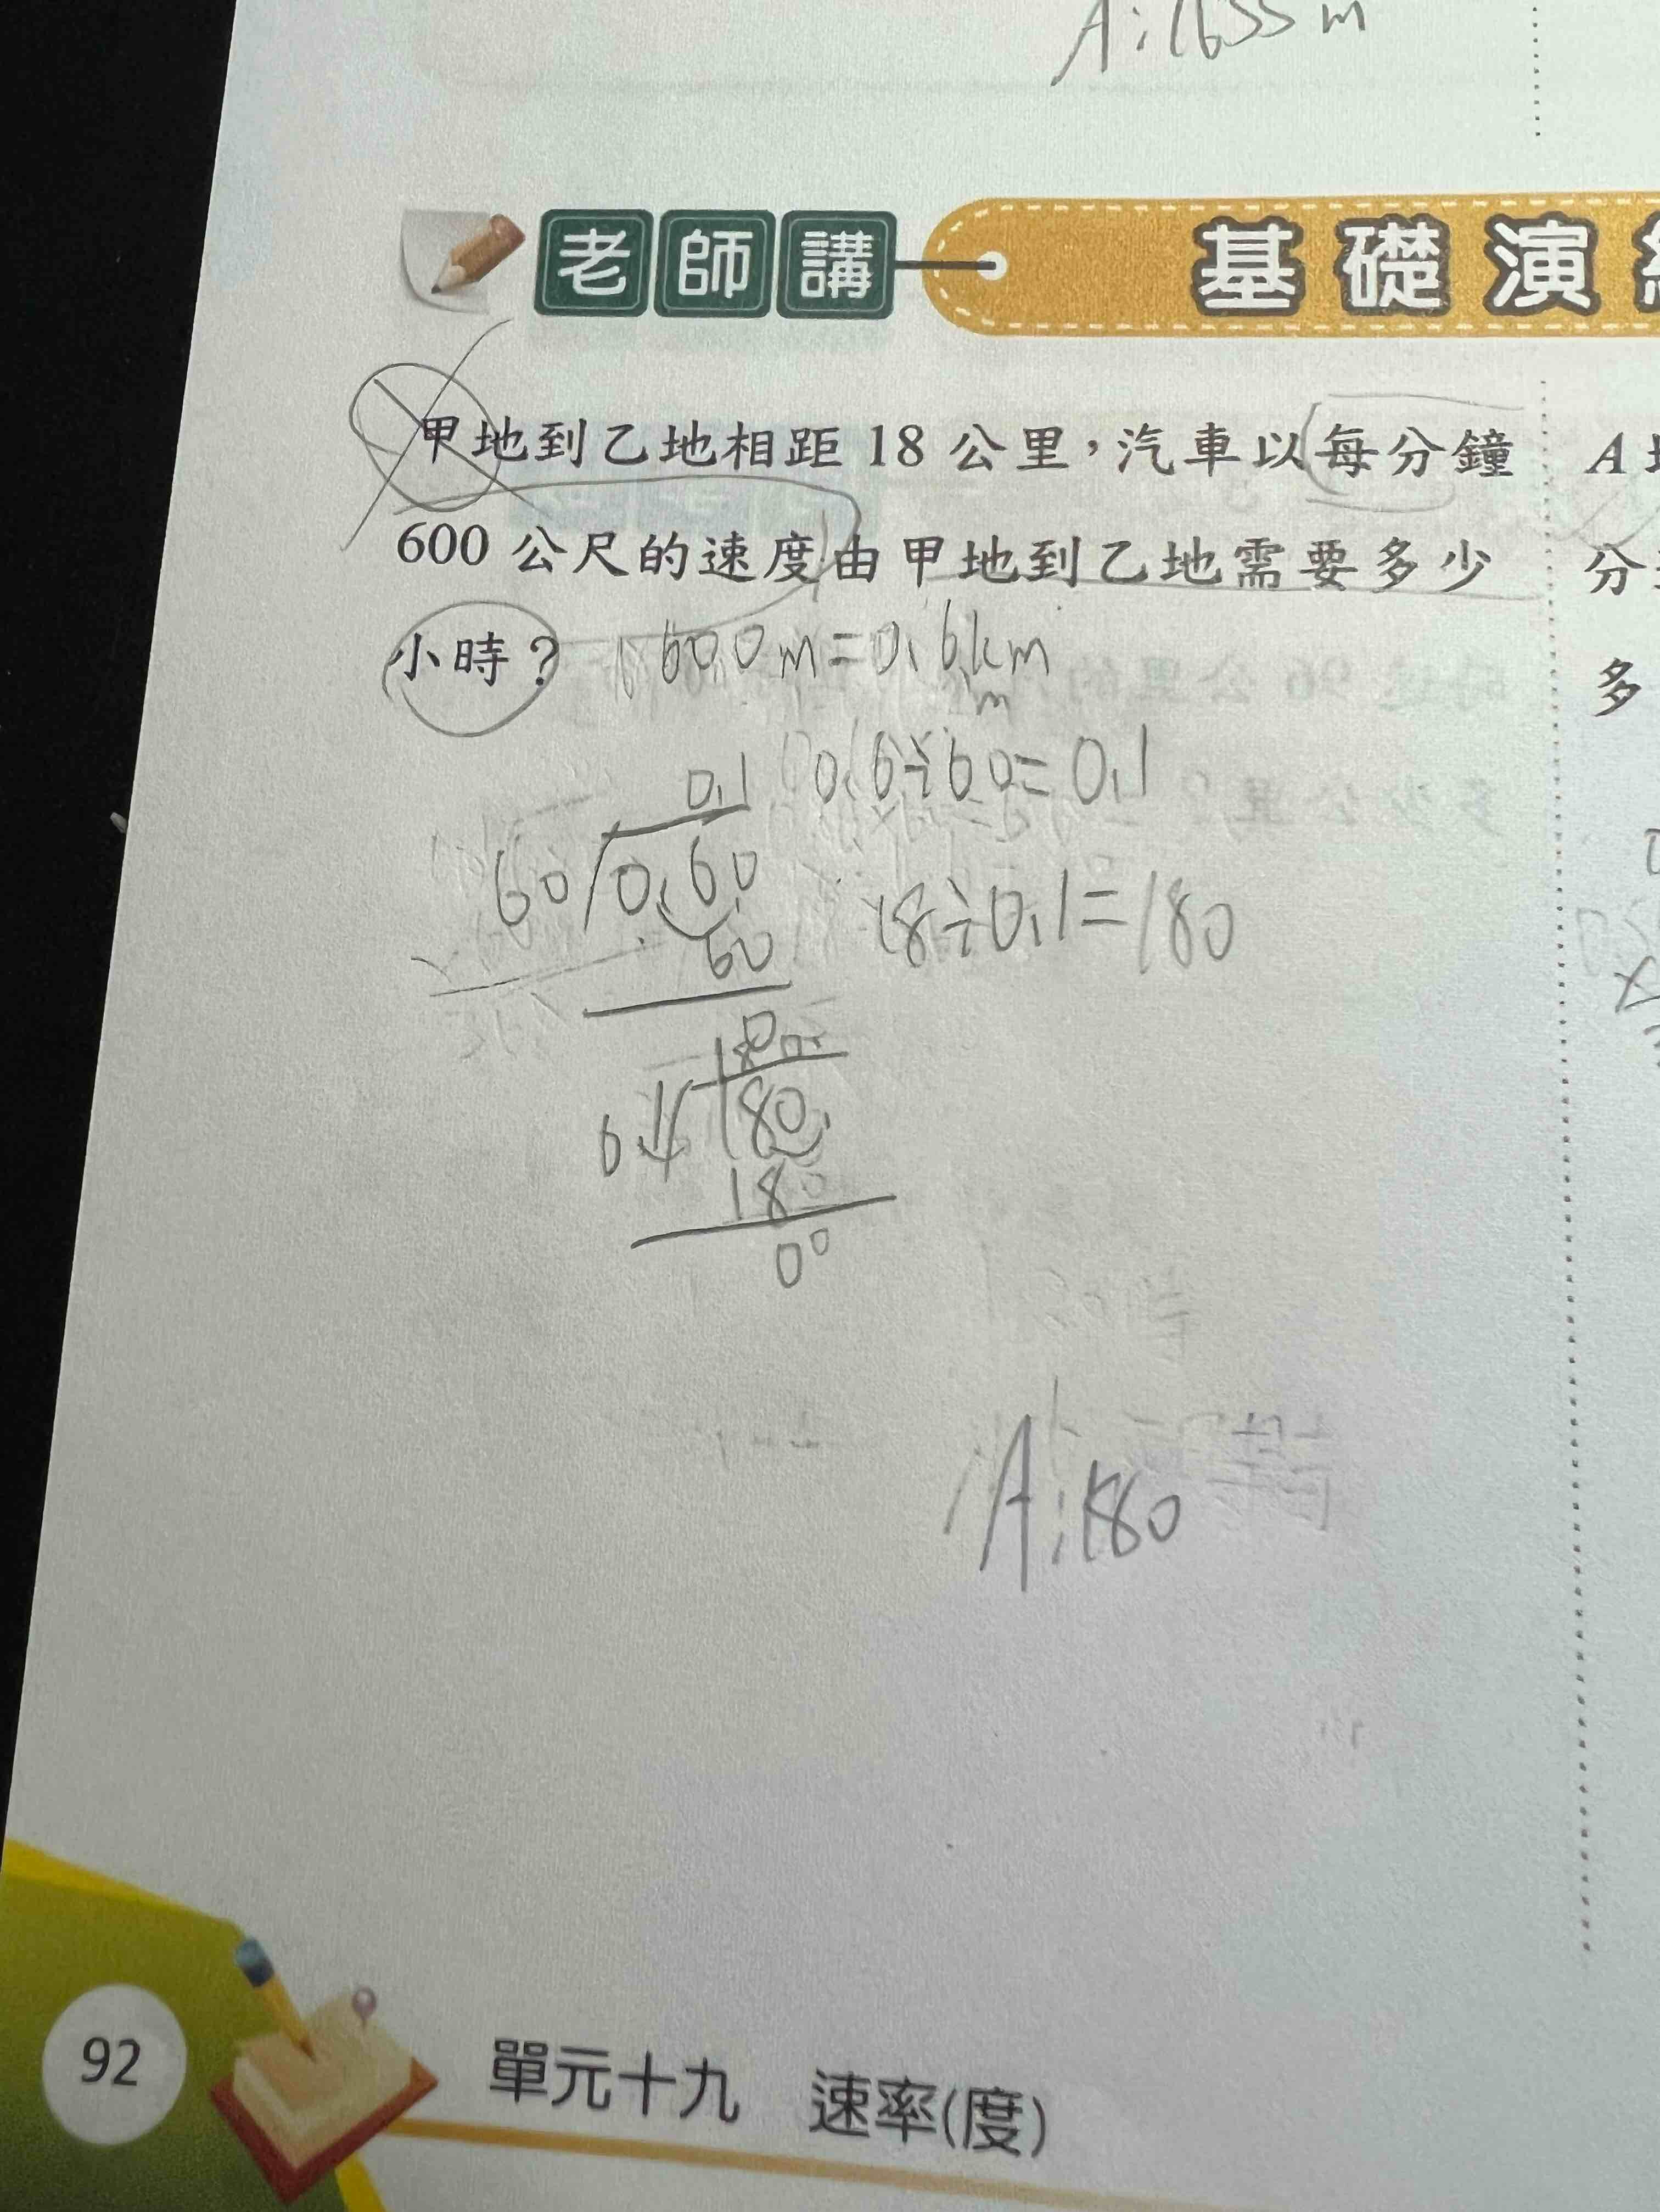 A:1655m
老師講
基礎演
甲地到乙地相距 18 公里，汽車以每分鐘
600 公尺的速度由甲地到乙地需要多少
小時？
600m=0.6km
m
0.6÷60=0.1
0.1
60 0.60
60
18÷0.1=180
180
0.1 180
180
00
A:180
A
分
多
92
單元十九 速率(度)